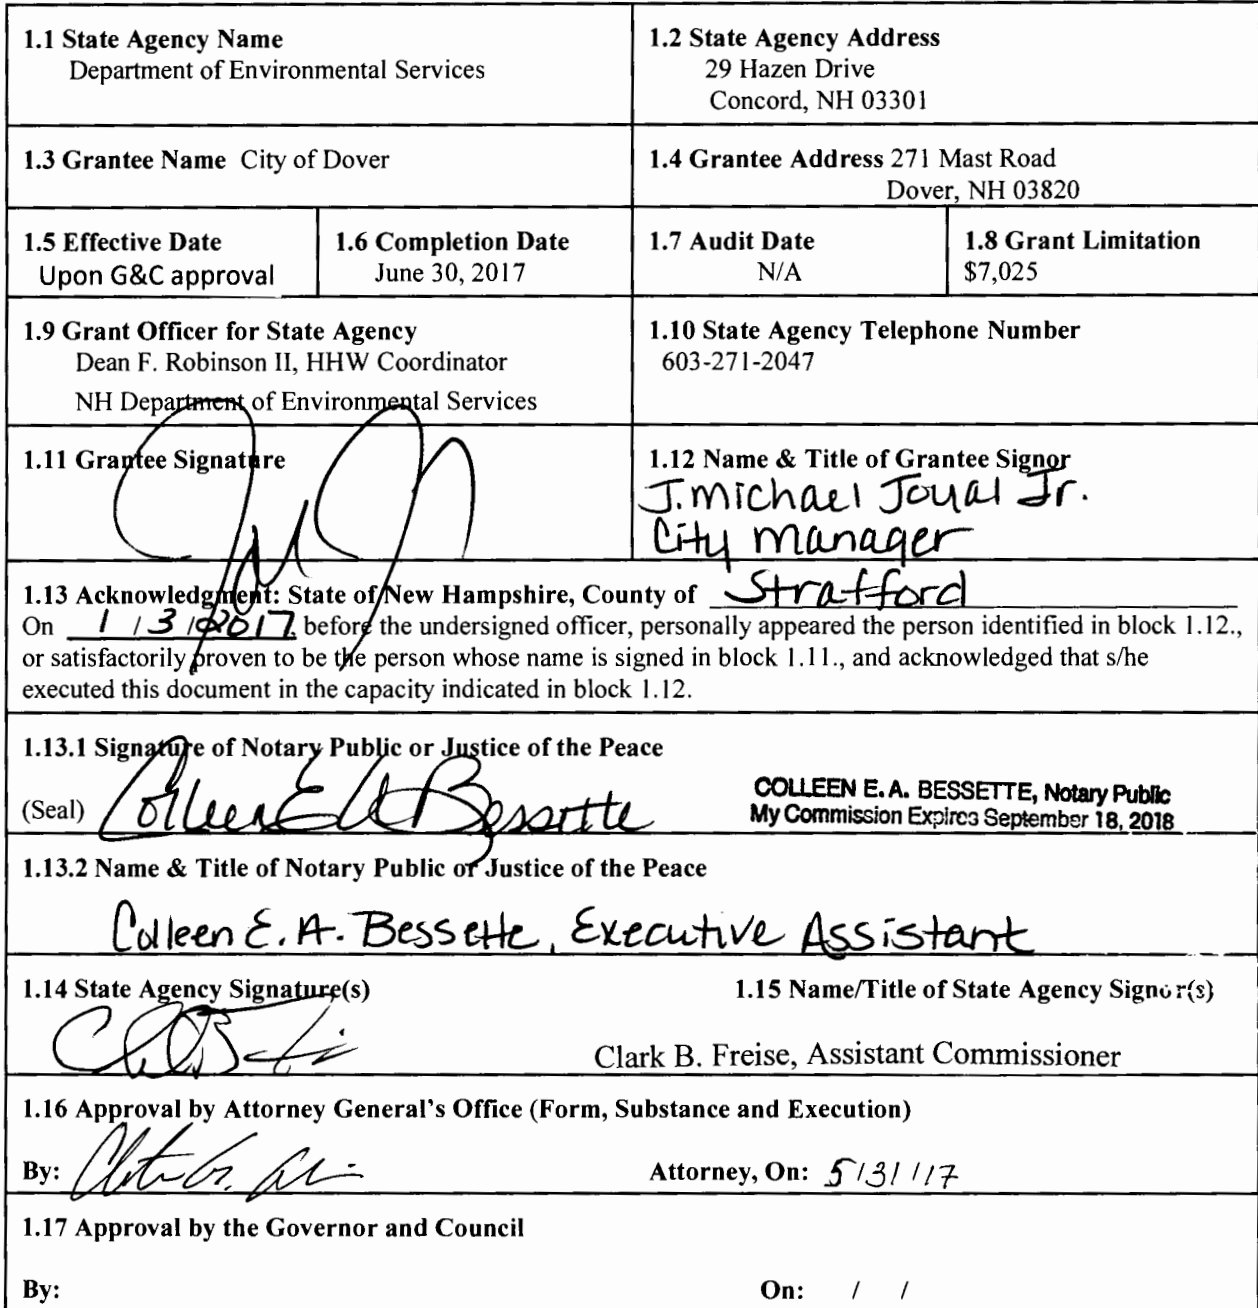 1.1 State Agency Name
Department of Environmental Services
1.2 State Agency Address
29 Hazen Drive
Concord, NH 03301
1.3 Grantee Name City of Dover
1.4 Grantee Address 271 Mast Road
Dover, NH 03820
1.5 Effective Date
Upon G&C approval
1.6 Completion Date
June 30, 2017
1.7 Audit Date
N/A
1.8 Grant Limitation
$7,025
1.9 Grant Officer for State Agency
Dean F. Robinson II, HHW Coordinator
NH Department of Environmental Services
1.10 State Agency Telephone Number
603-271-2047
1.11 Grantee Signature
1.12 Name & Title of Grantee Signor
J. Michael Joyal Jr.
City Manager
1.13 Acknowledgment: State of New Hampshire, County of Strafford
On 1 / 3 / 2017, before the undersigned officer, personally appeared the person identified in block 1.12.,
or satisfactorily proven to be the person whose name is signed in block 1.11., and acknowledged that s/he
executed this document in the capacity indicated in block 1.12.
1.13.1 Signature of Notary Public or Justice of the Peace
(Seal) Colleen E A Bessette
COLLEEN E. A. BESSETTE, Notary Public
My Commission Expires September 18, 2018
1.13.2 Name & Title of Notary Public or Justice of the Peace
Colleen E. A. Bessette, Executive Assistant
1.14 State Agency Signature(s)
1.15 Name/Title of State Agency Signor(s)
Clark B. Freise, Assistant Commissioner
1.16 Approval by Attorney General's Office (Form, Substance and Execution)
By:
Attorney, On: 5/31/17
1.17 Approval by the Governor and Council
By:
On: / /